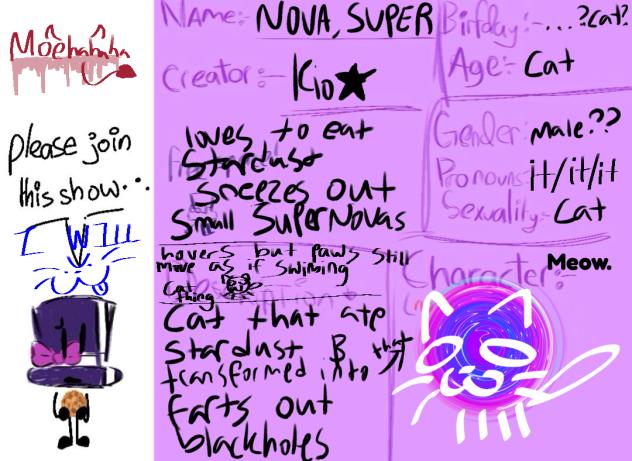 Moehahaha
please join
this show...
I WILL
Name:- NOVA, SUPER
Creator:- Kio★
Birfday:- ...?cat?
Age:- Cat
Gender: Male??
Pronouns: it/it/it
Sexuality:- Cat
loves to eat
Stardust
Sneezes out
Small SuperNovas
hovers but paws still
move as if swiming
cat
thing
Cat that ate
Stardust & that
transformed into
farts out
blackholes
Character:
Meow.